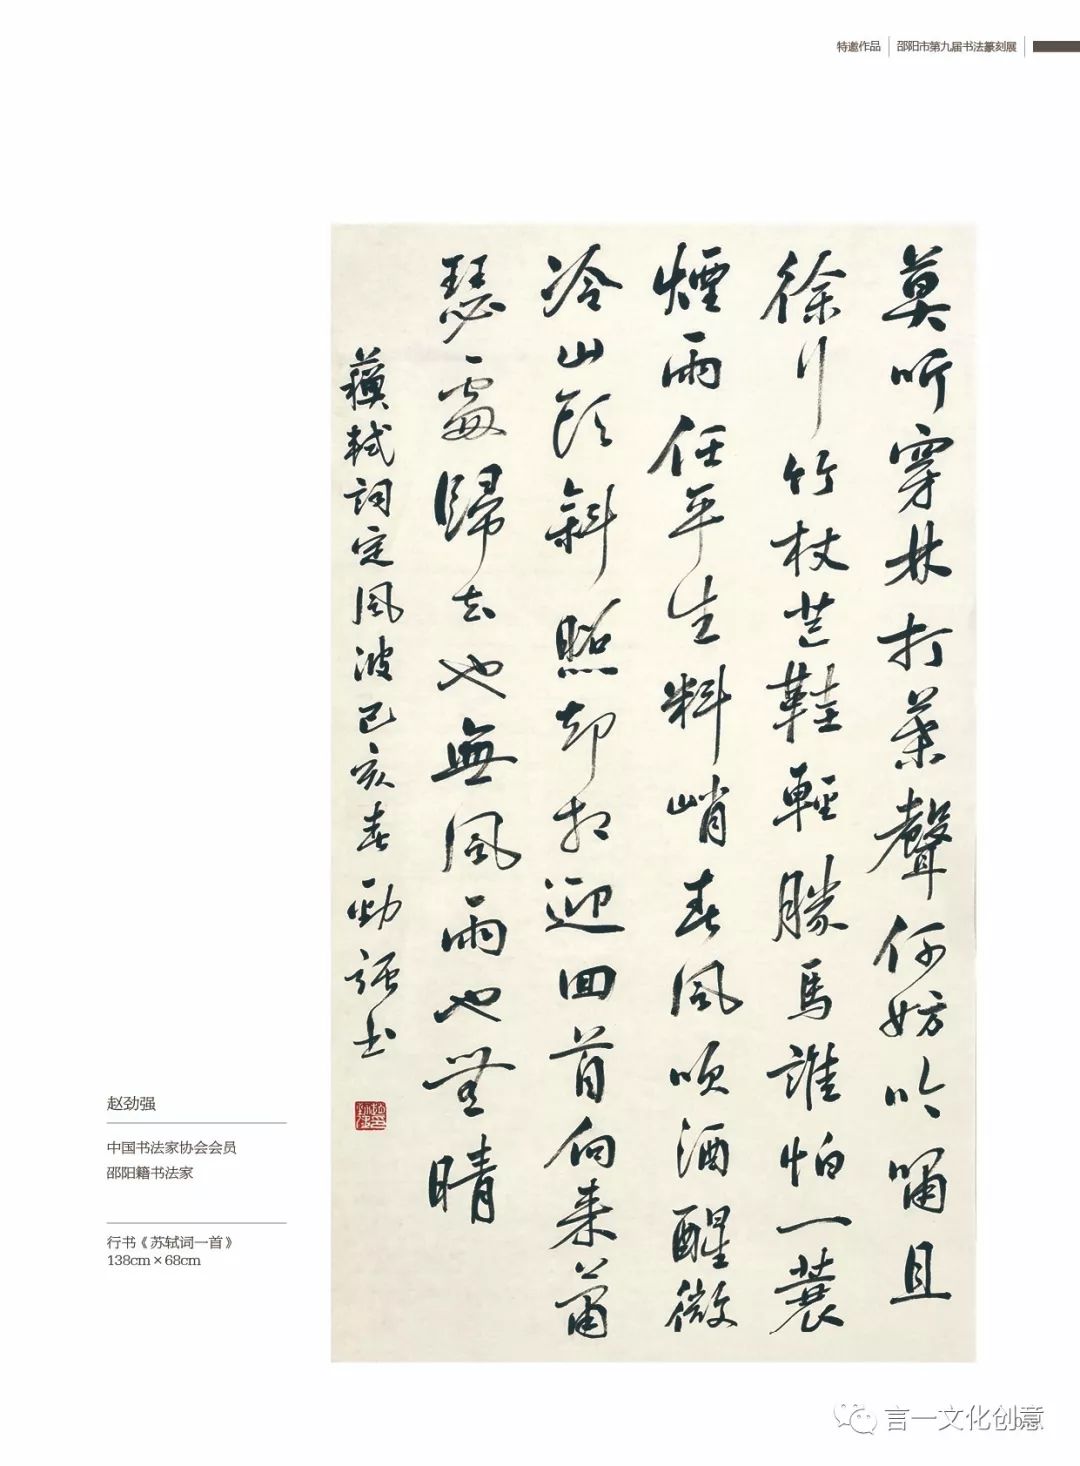 特邀作品 邵阳市第九届书法篆刻展
莫听穿林打葉聲何妨吟嘯且
徐行竹杖芒鞋輕勝馬誰怕一蓑
煙雨任平生料峭春風吹酒醒微
冷山頭斜照却相迎回首向来蕭
瑟處歸去也無風雨也無晴
蘇軾詞定風波己亥春勁强书
赵劲强
中国书法家协会会员
邵阳籍书法家
行书《苏轼词一首》
138cm×68cm
言一文化创意